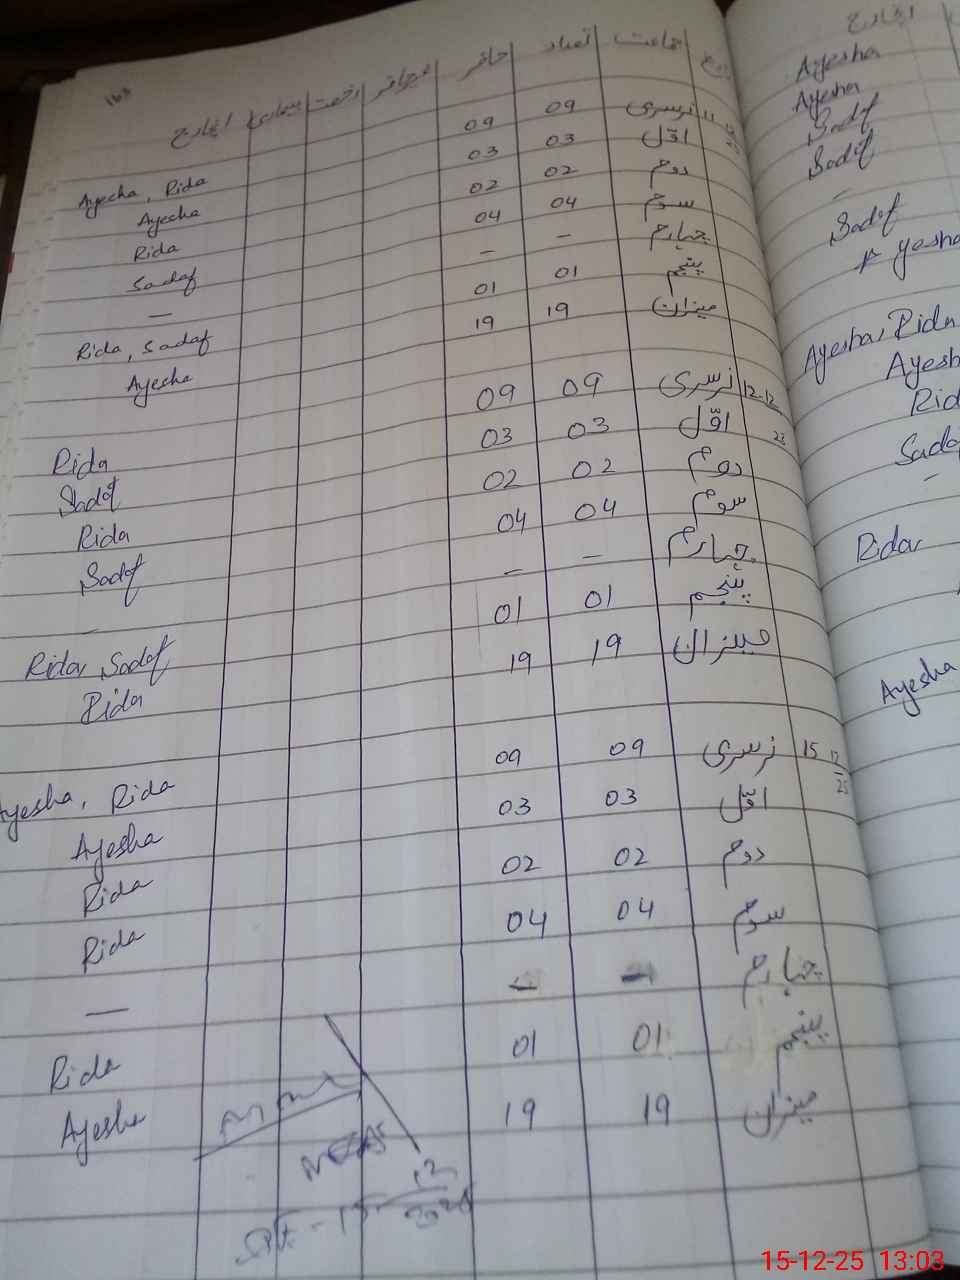 163
تاریخ جماعت تعداد حاضر غیرحاضر رخصت بیماری انچارج
11 12 25 نرسری 09 09 Ayesha, Rida
اوّل 03 03 Ayesha
دوم 02 02 Rida
سوم 04 04 Sadaf
چہارم – – —
پنجم 01 01 Rida, Sadaf
میزان 19 19 Ayesha
12-12 23 نرسری 09 09 Rida
اوّل 03 03 Sadaf
دوم 02 02 Rida
سوم 04 04 Sadaf
چہارم – – –
پنجم 01 01 Rida, Sadaf
میزان 19 19 Rida
15 12 25 نرسری 09 09 Ayesha, Rida
اوّل 03 03 Ayesha
دوم 02 02 Rida
سوم 04 04 Rida
چہارم – – —
پنجم 01 01 Rida
میزان 19 19 Ayesha
انچارج
Ayesha
Ayesha
Sadaf
Sadaf
–
Sadaf
Ayesha, Rida
Rida
Ayesha
15-12-25 13:03